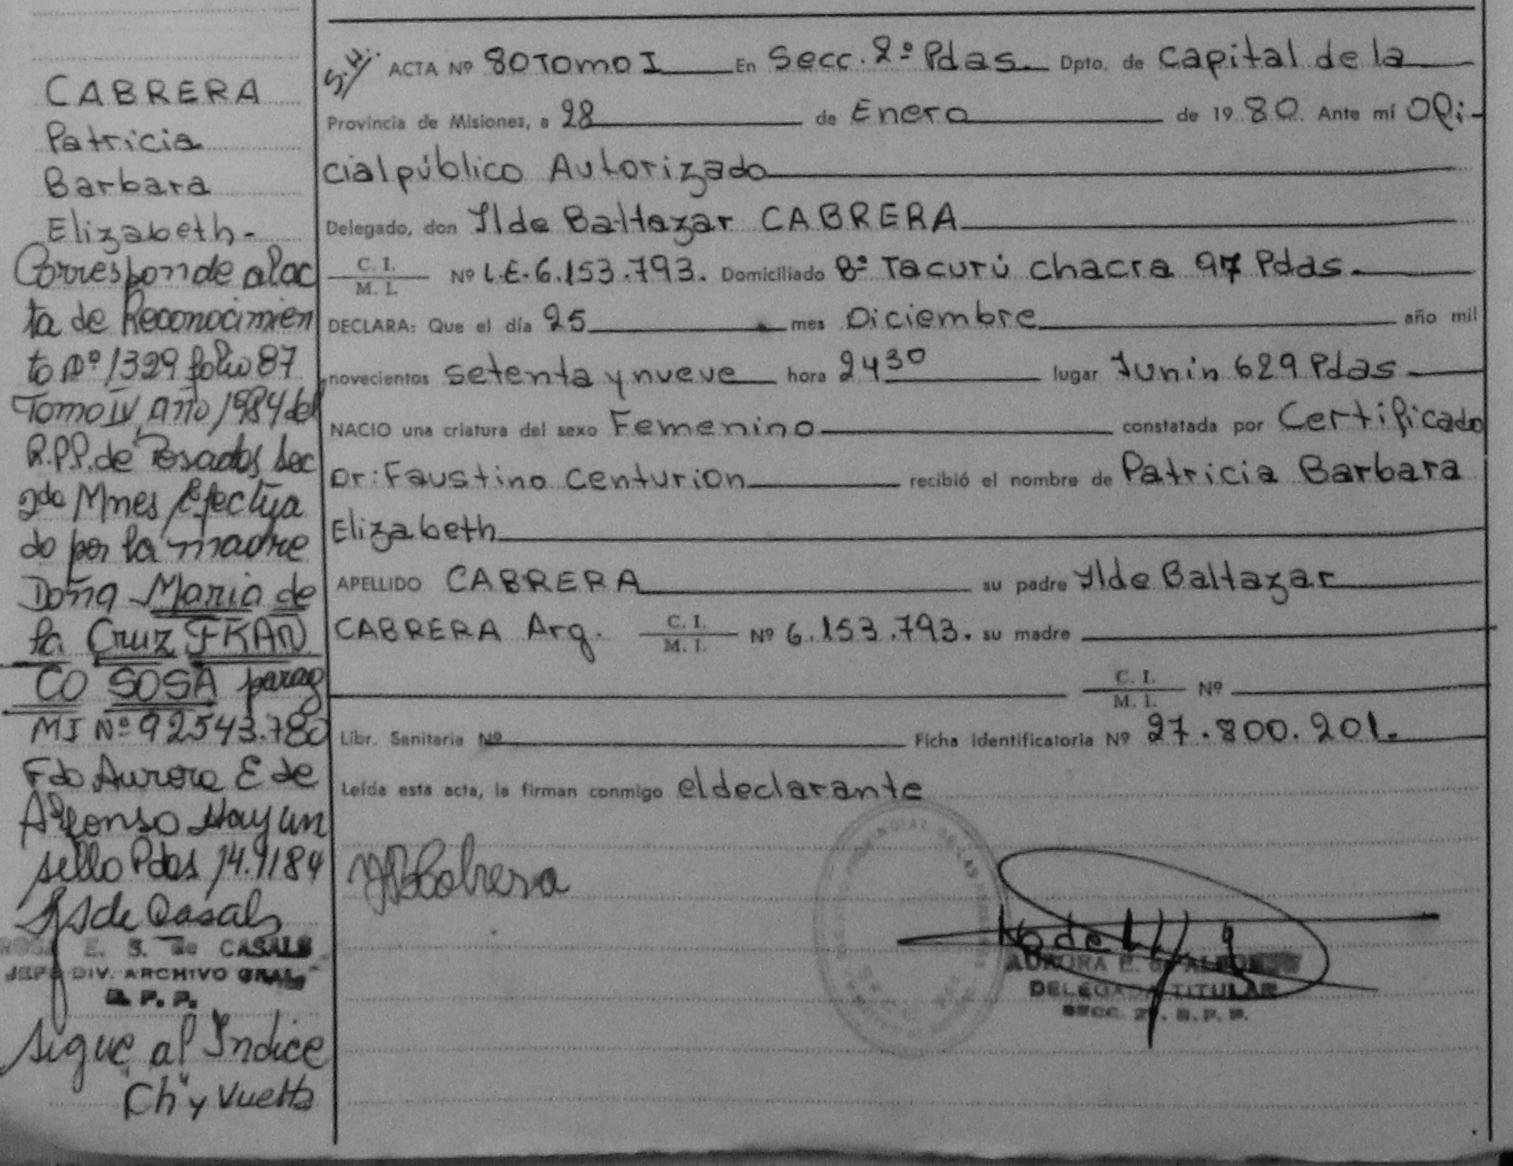 CABRERA
Patricia
Barbara
Elizabeth-
Corresponde al ac
ta de Reconocimien
to Nº 1329 folio 87
Tomo IV, año 1984 del
R.P.P. de Posadas Sec
2da Mnes Efectua
do por la madre
Doña Maria de
la Cruz FRAN
CO SOSA parag
MI Nº 92543.780
Fdo Aurora E de
Alfonso Hay un
sello Pdas 14.9.184
de Casals
ROSA E. S. de CASALS
JEFE DIV. ARCHIVO GRAL
R. P. P.
Sigue al Indice
"Ch" y Vuelta
S.H. ACTA Nº 80 Tomo I En Secc. 2º Pdas. Dpto. de Capital de la
Provincia de Misiones, a 28 de Enero de 1980. Ante mí Ofi-
cial público Autorizado
Delegado, don Ilde Baltazar CABRERA
C. I.
M. I. Nº L.E. 6.153.793. Domiciliado Bº Tacurú chacra 97 Pdas.
DECLARA: Que el día 25 mes Diciembre año mil
novecientos setenta y nueve hora 2430 lugar Junin 629 Pdas
NACIO una criatura del sexo Femenino constatada por Certificado
Dr: Faustino Centurion recibió el nombre de Patricia Barbara
Elizabeth
APELLIDO CABRERA su padre Ilde Baltazar
CABRERA Arg. C. I.
M. I. Nº 6.153.793. su madre
C. I.
M. I. Nº
Libr. Sanitaria Nº Ficha identificatoria Nº 27.800.201.
Leída esta acta, la firman conmigo el declarante
Cabrera
AURORA E. de ALFONSO
DELEGADA TITULAR
SECC. 2ª. R. P. P.